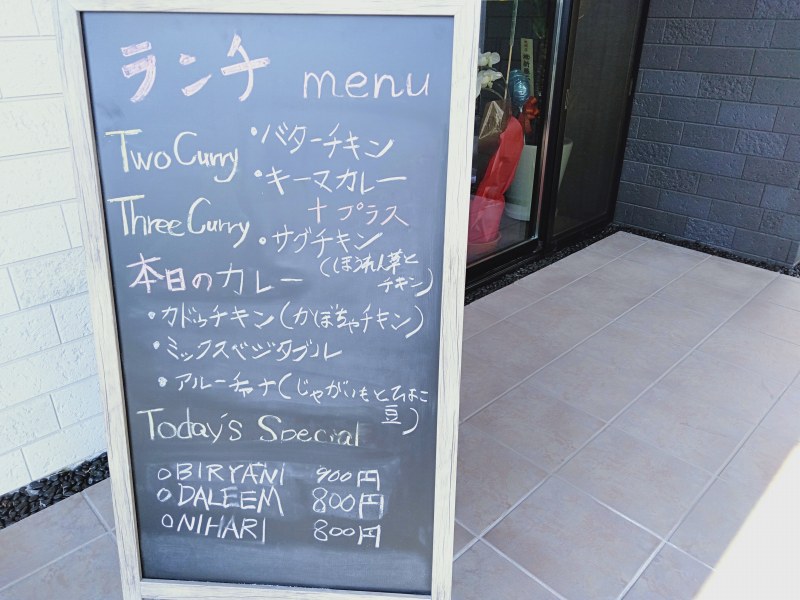 ランチ menu
Two Curry ・バターチキン
・キーマカレー
Three Curry + プラス
・サグチキン
(ほうれん草と
チキン)
本日のカレー
・カドゥチキン(かぼちゃチキン)
・ミックスベジタブル
・アルーチャナ(じゃがいもとひよこ
豆)
Today's Special
○BIRYANI 900円
○DALEEM 800円
○NIHARI 800円